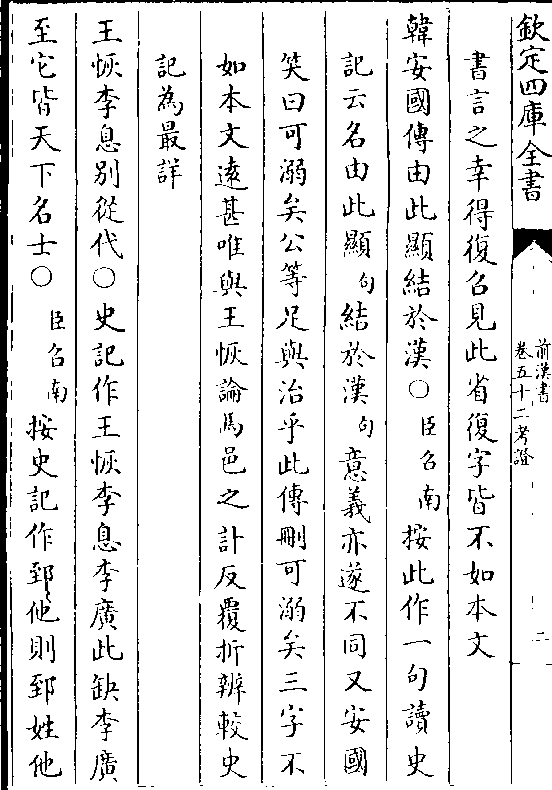 欽定四庫全書
前漢書
卷五十二考證
二
書言之幸得復召見此省復字皆不如本文
韓安國傳由此顯結於漢○臣召南按此作一句讀史
記云名由此顯句結於漢句意義亦遂不同又安國
笑曰可溺矣公等足與治乎此傳刪可溺矣三字不
如本文遠甚唯與王恢論馬邑之計反覆折辨較史
記為最詳
王恢李息別從代○史記作王恢李息李廣此缺李廣
至它皆天下名士○臣召南按史記作郅他則郅姓他